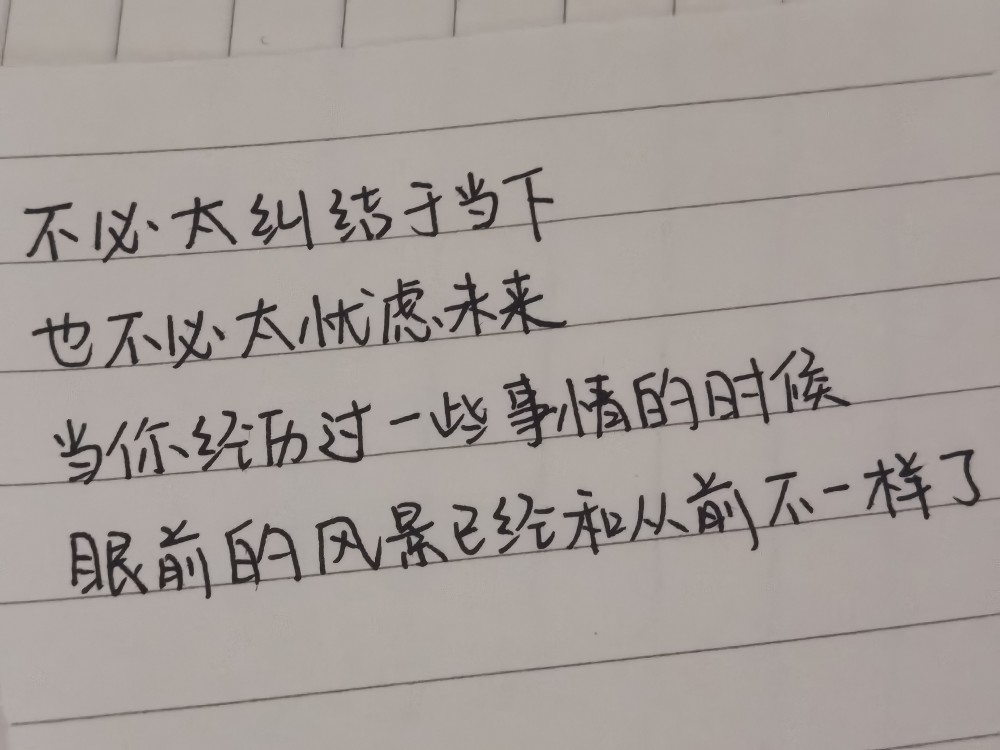 不必太纠结于当下
也不必太忧虑未来
当你经历过一些事情的时候
眼前的风景已经和从前不一样了